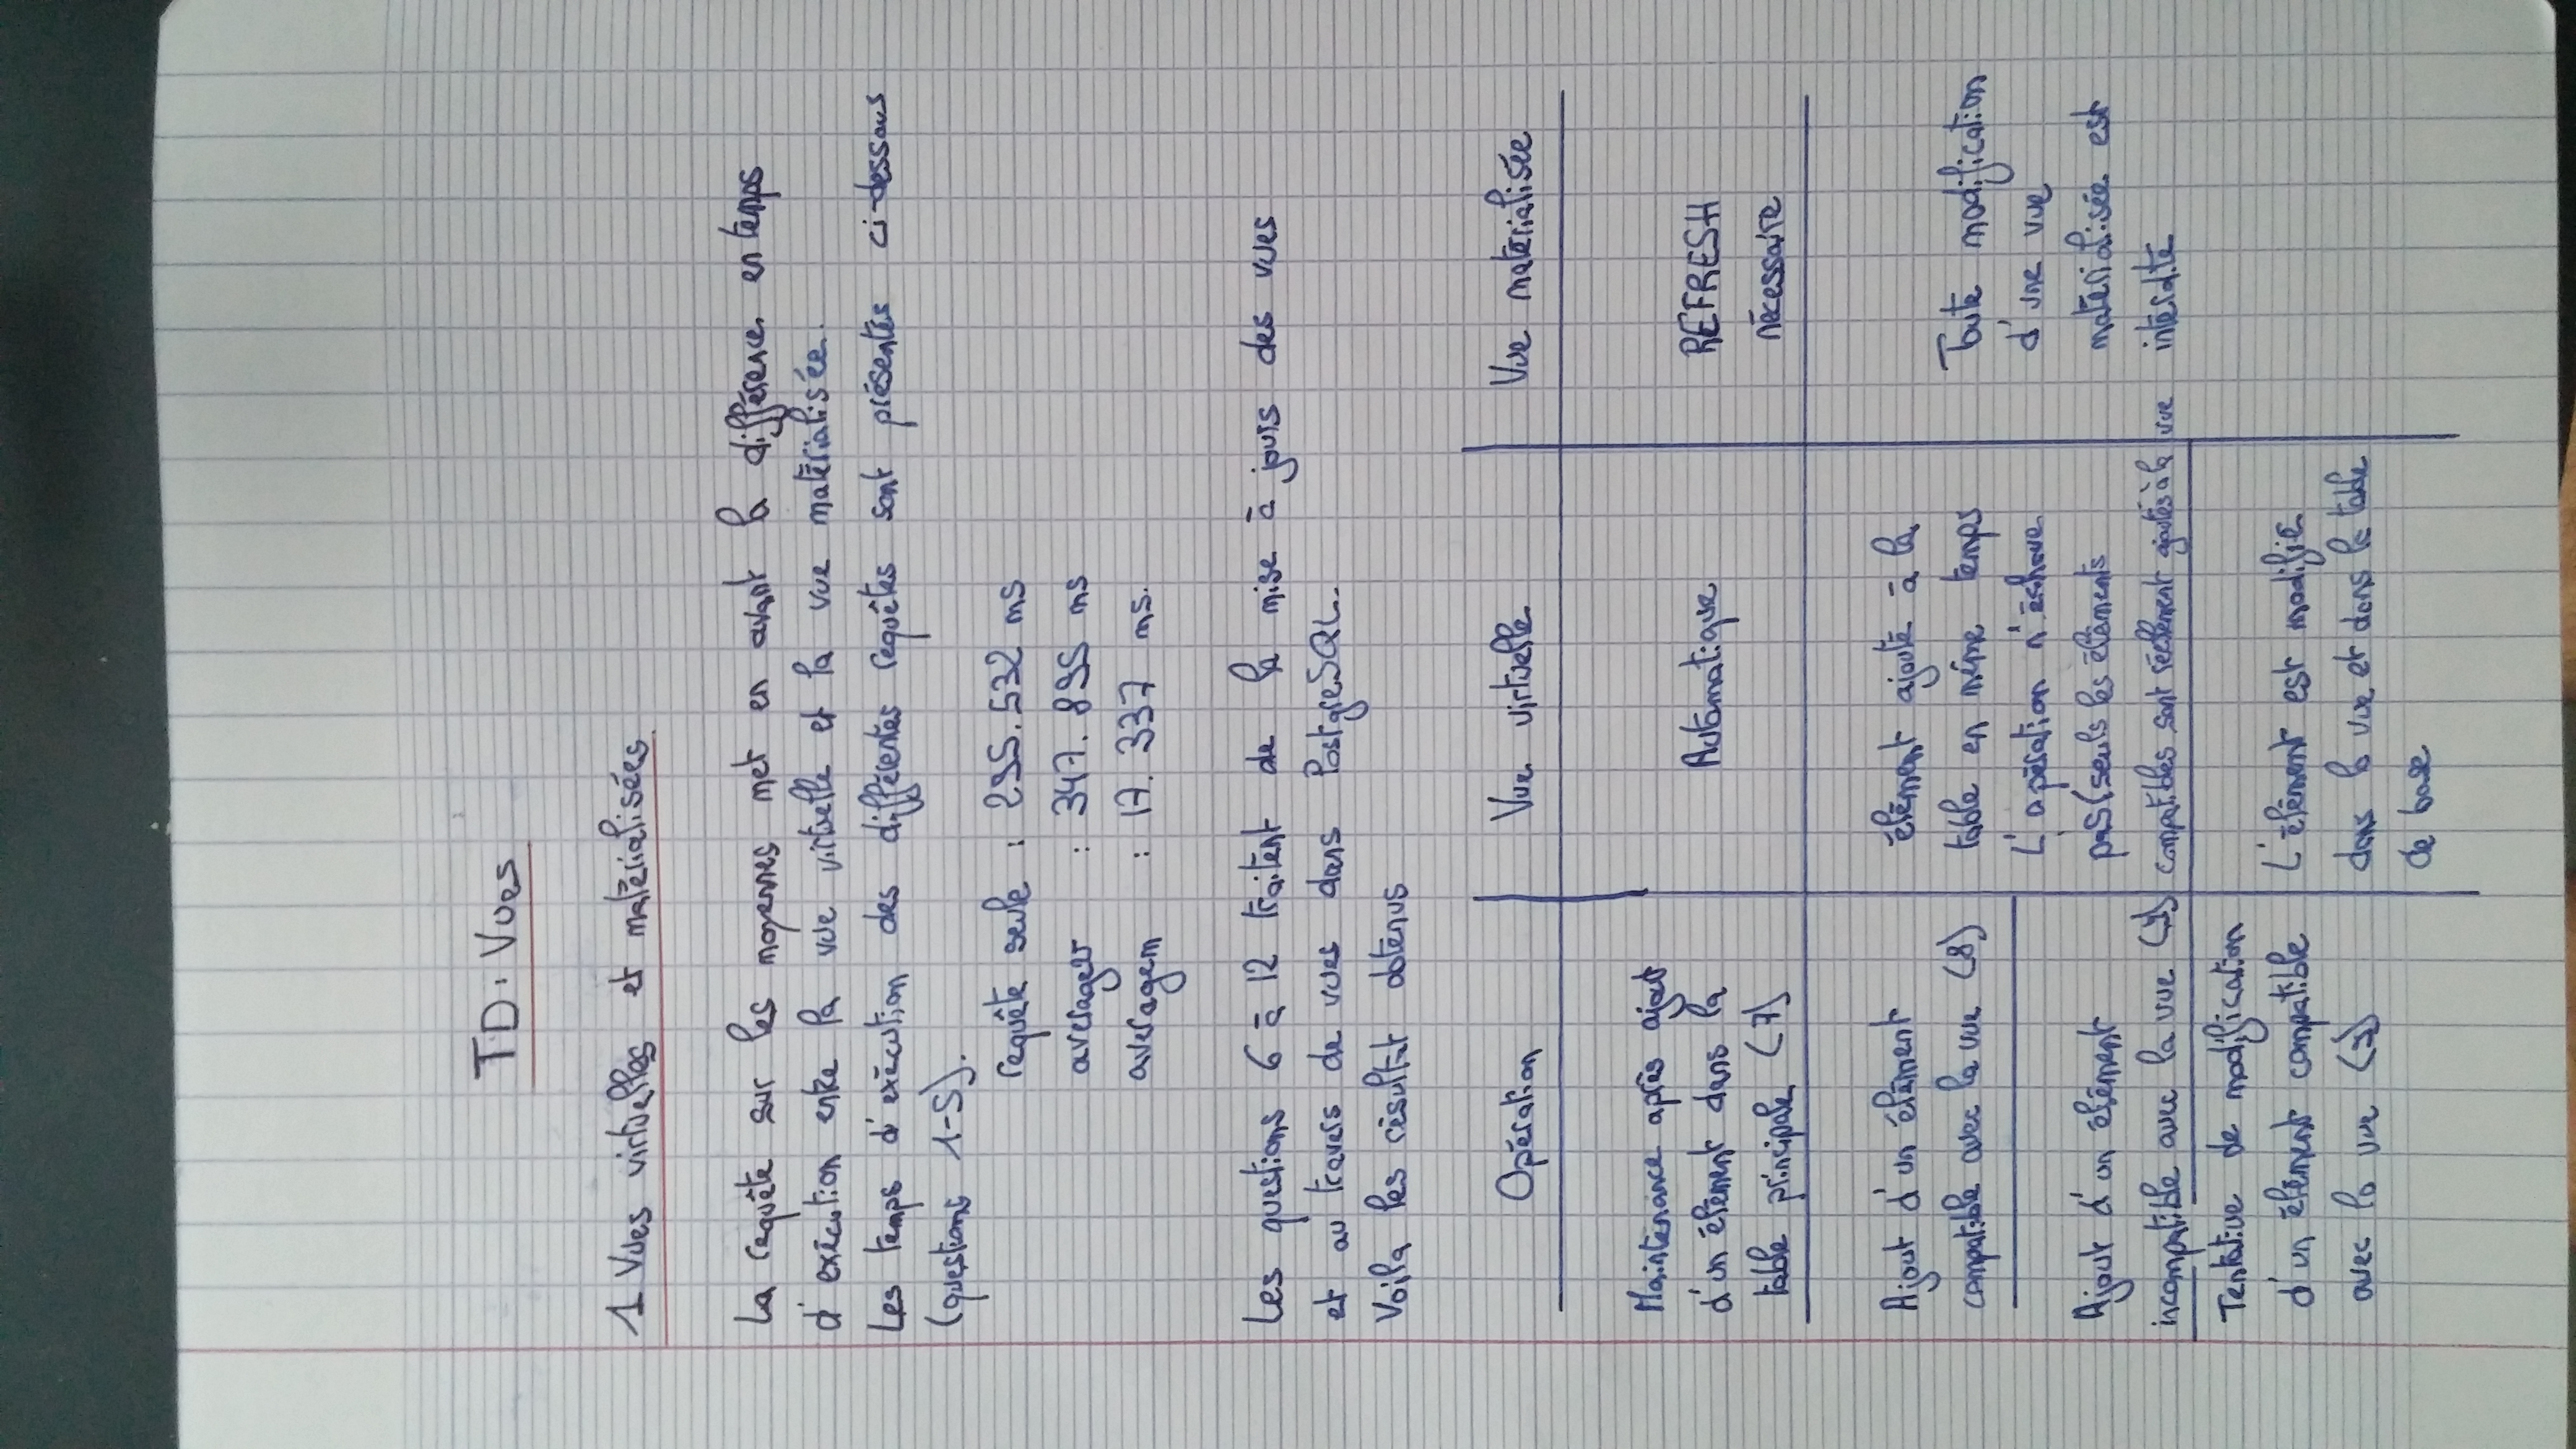 TD : Vues
1 Vues virtuelles et matérialisées
La requête sur les moyennes met en avant la différence en temps
d'exécution entre la vue virtuelle et la vue matérialisée.
Les temps d'exécution des différentes requêtes sont présentés ci-dessous
(questions 1-5).
requête seule : 295.532 ms
averagev : 347.895 ms
averagem : 17.337 ms.
Les questions 6 à 12 traitent de la mise à jours des vues
et au travers de vues dans PostgreSQL.
Voila les résultat obtenus
Opération
Vue virtuelle
Vue matérialisée
Maintenance après ajout
d'un élément dans la
table principale (7)
Automatique
REFRESH
nécessaire
Ajout d'un élément
compatible avec la vue (8)
élément ajouté à la
table en même temps
Ajout d'un élément
incompatible avec la vue (9)
L'opération n'échoue
pas (seuls les éléments
compatibles sont réellement ajoutés à la vue
Toute modification
d'une vue
matérialisée est
interdite
Tentative de modification
d'un élément compatible
avec la vue
L'élément est modifié
dans la vue et dans la table
de base